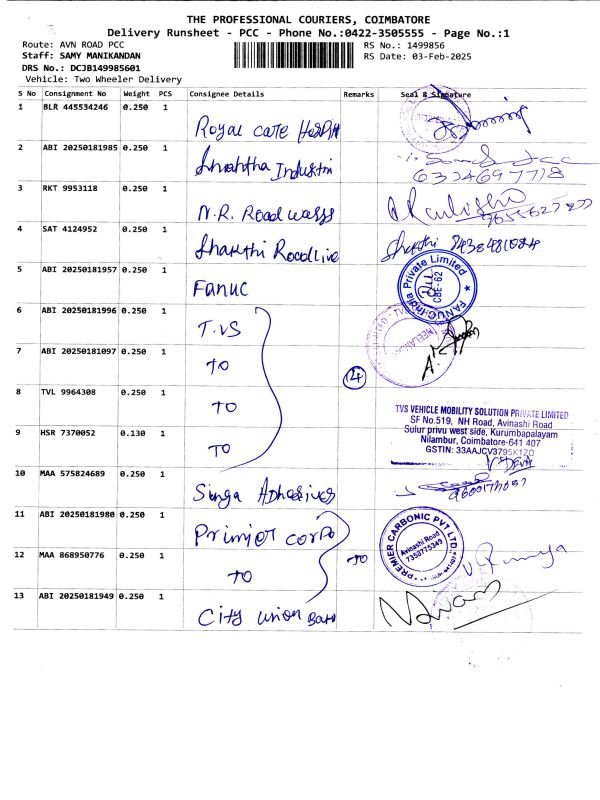 THE PROFESSIONAL COURIERS, COIMBATORE
Delivery Runsheet - PCC - Phone No.:0422-3505555 - Page No.:1
Route: AVN ROAD PCC
RS No.: 1499856
Staff: SAMY MANIKANDAN
RS Date: 03-Feb-2025
DRS No.: DCJB149985601
Vehicle: Two Wheeler Delivery
S No Consignment No Weight PCS Consignee Details Remarks Seal & Signature
1 BLR 445534246 0.250 1 Royal care
2 ABI 20250181985 0.250 1
6334697718
3 RKT 9953118 0.250 1 N.R. Roadways
4 SAT 4124952 0.250 1 Shakthi Roadline Shakthi
5 ABI 20250181957 0.250 1 Fanuc
FANUC India Private Limited CBE-62
6 ABI 20250181996 0.250 1 T.VS
7 ABI 20250181097 0.250 1 TO
14
8 TVL 9964308 0.250 1 TO
TVS VEHICLE MOBILITY SOLUTION PRIVATE LIMITED
SF No.519, NH Road, Avinashi Road
Sulur privu west side, Kurumbapalayam
Nilambur, Coimbatore-641 407
GSTIN: 33AAJCV3795K1ZO
9 HSR 7370052 0.130 1 TO
10 MAA 575824689 0.250 1 Adhesives
11 ABI 20250181980 0.250 1
PREMIER CARBONIC PVT LTD.
Avinashi Road
7358775349
12 MAA 868950776 0.250 1 TO
13 ABI 20250181949 0.250 1 City union Bank